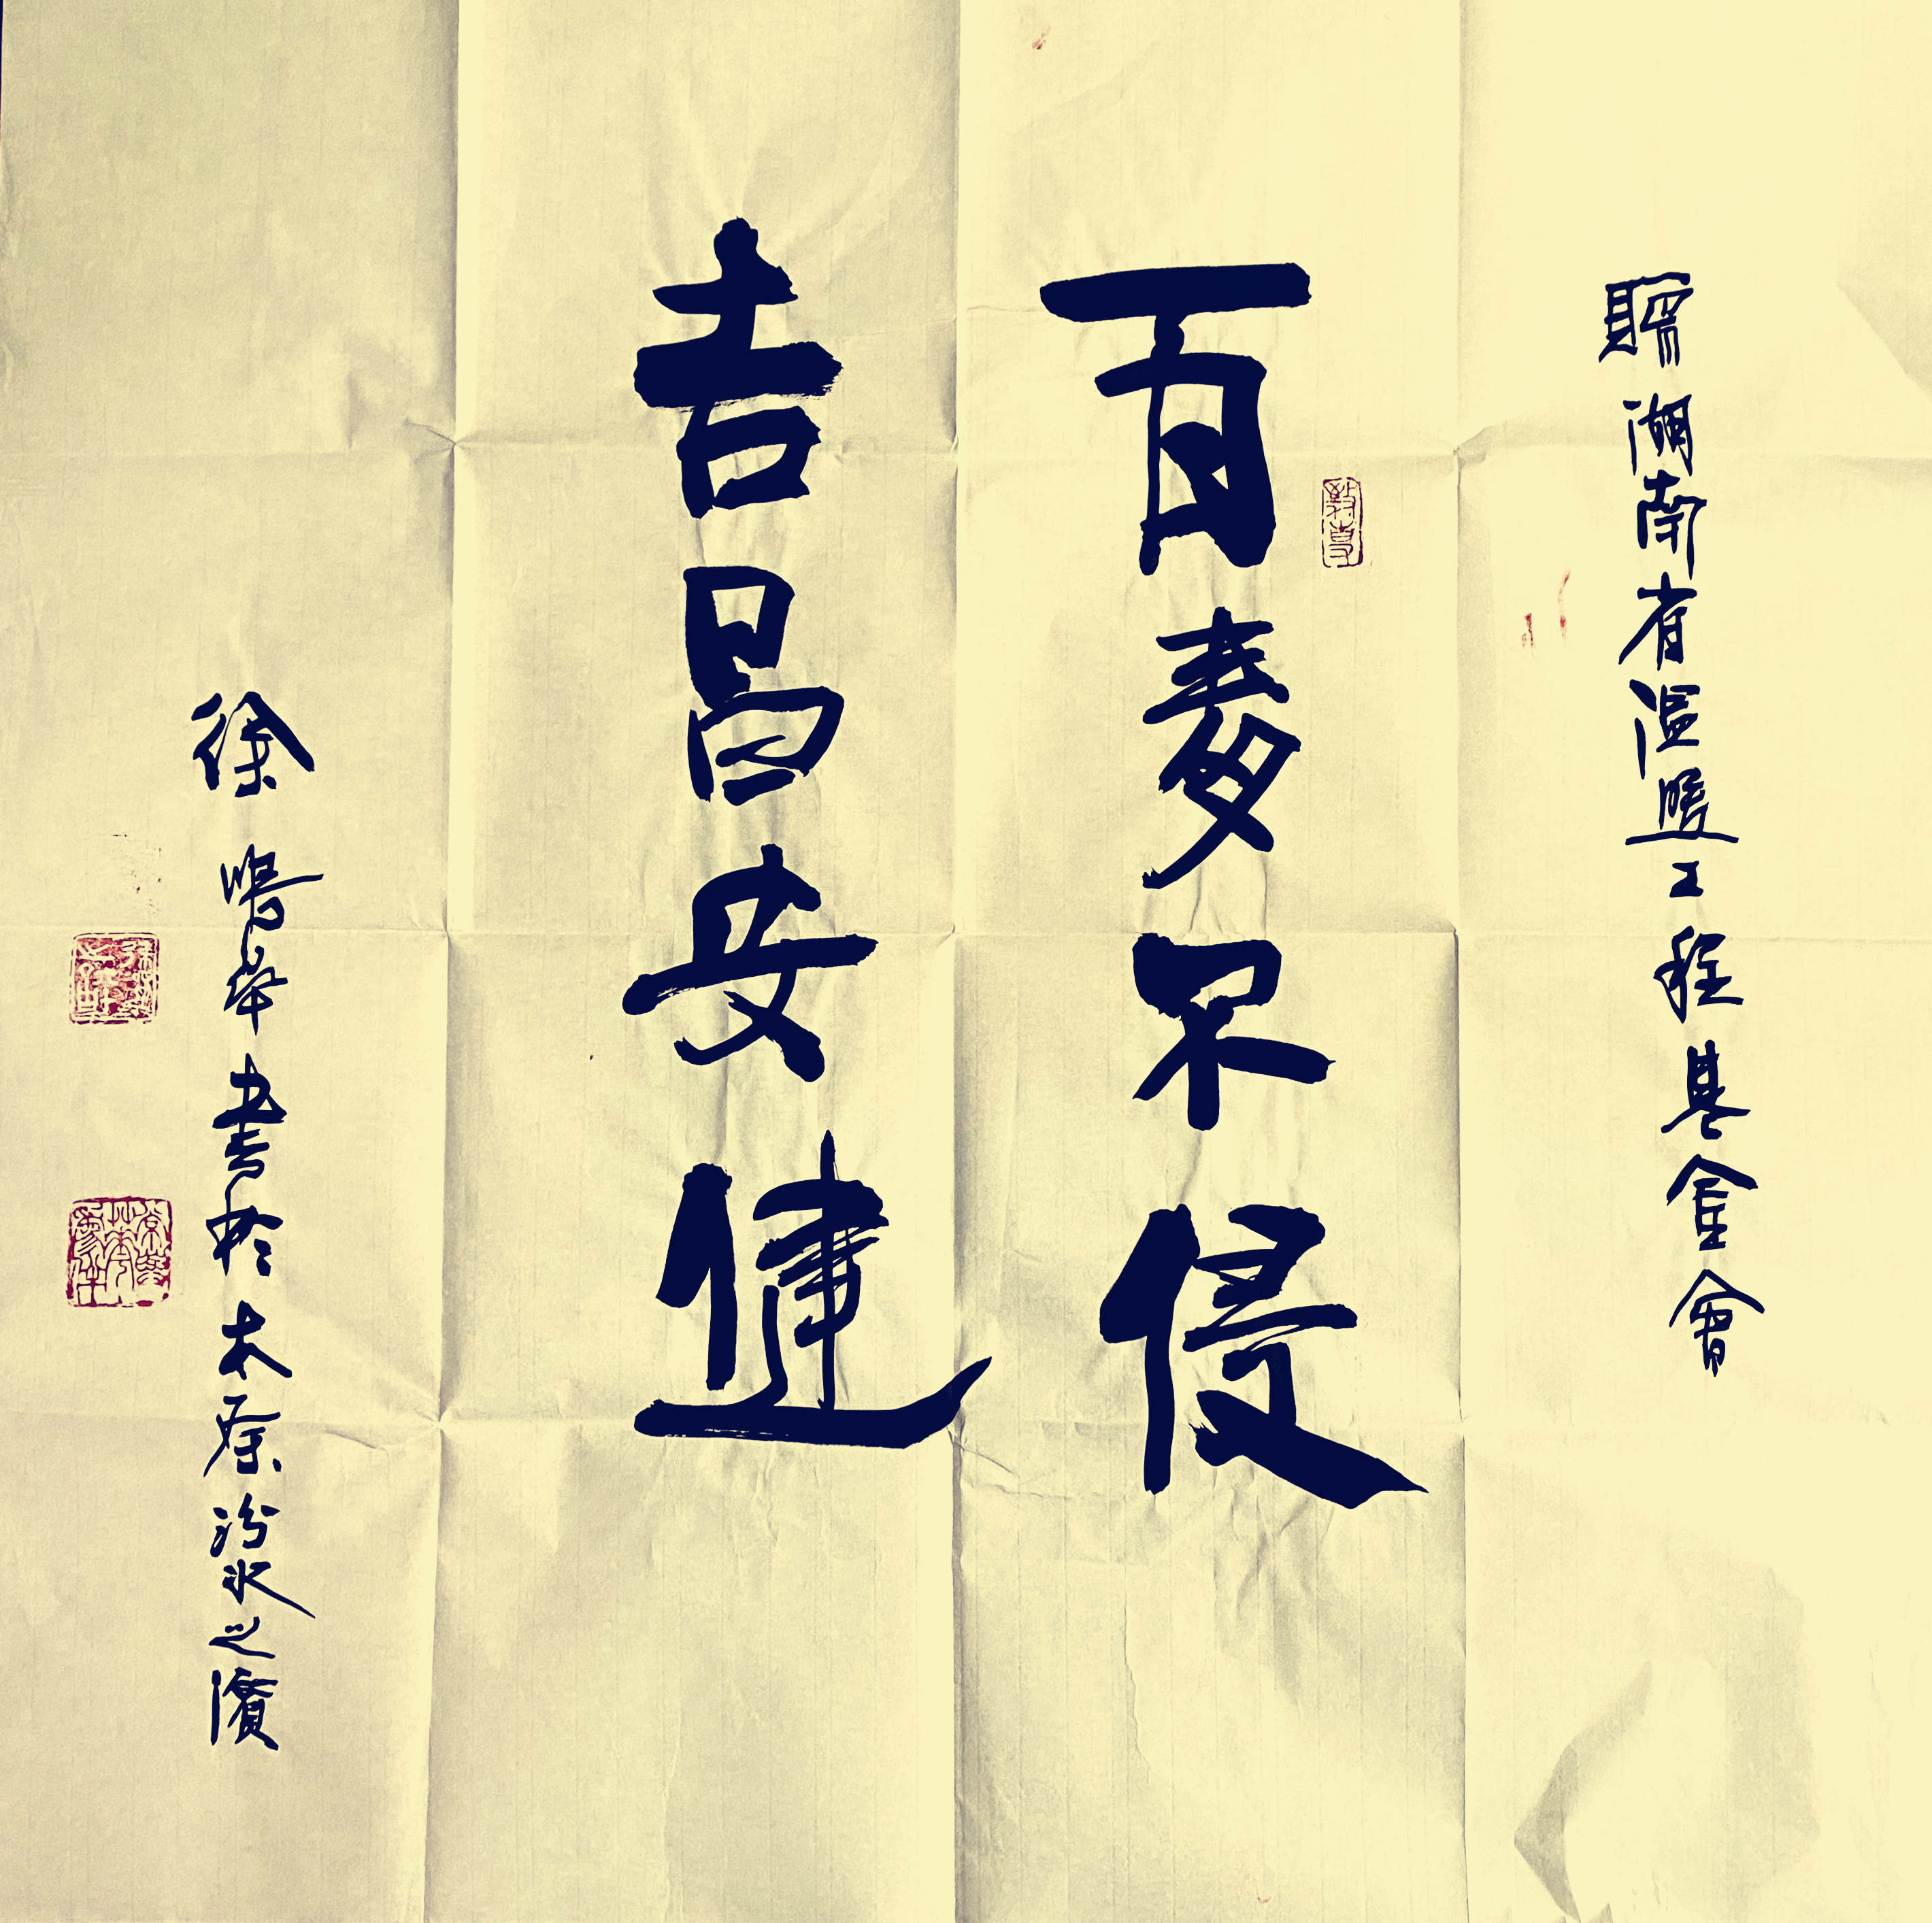 赠湖南省温暖工程基金會
百毒不侵
吉昌安健
徐 書於太原汾水之濱